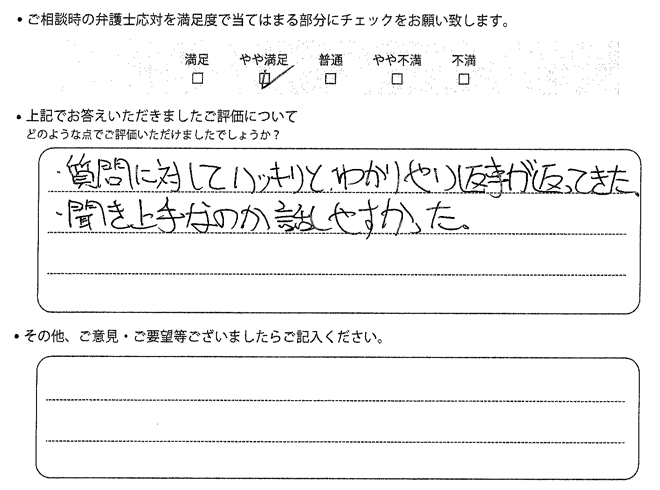 • ご相談時の弁護士応対を満足度で当てはまる部分にチェックをお願い致します。
満足 やや満足 普通 やや不満 不満
□ ☑ □ □ □
• 上記でお答えいただきましたご評価について
どのような点でご評価いただけましたでしょうか？
・質問に対してハッキリと、わかりやすい返事が返ってきた。
・聞き上手なのか話しやすかった。
• その他、ご意見・ご要望等ございましたらご記入ください。